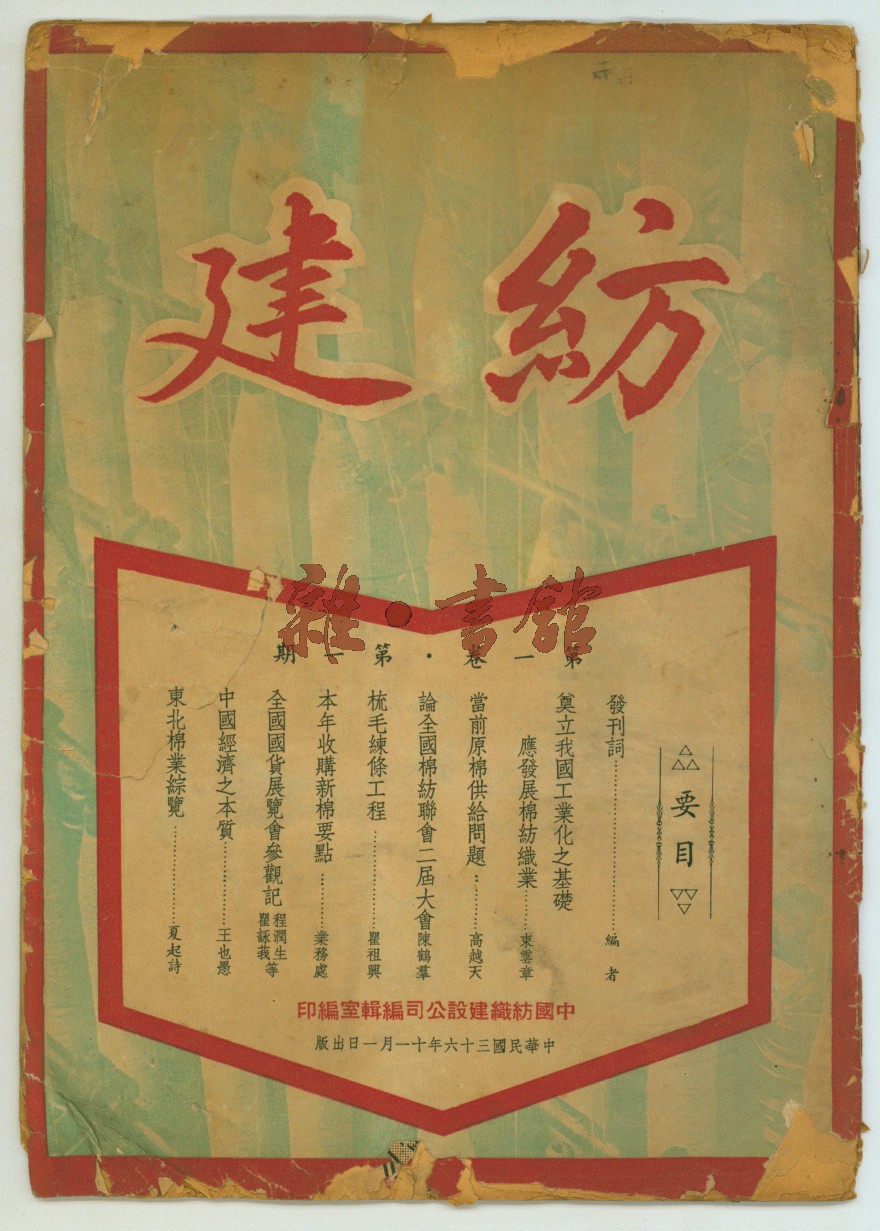 紡建
雜·書館
第一卷·第一期
要目
發刊詞……編者
奠立我國工業化之基礎
應發展棉紡織業……束雲章
當前原棉供給問題……高越天
論全國棉紡聯會二屆大會 陳鶴羣
梳毛練條工程……瞿祖興
本年收購新棉要點……業務處
全國國貨展覽會參觀記 程潤生 瞿詠莪等
中國經濟之本質……王也愚
東北棉業綜覽……夏起詩
中國紡織建設公司編輯室編印
中華民國三十六年十一月一日出版